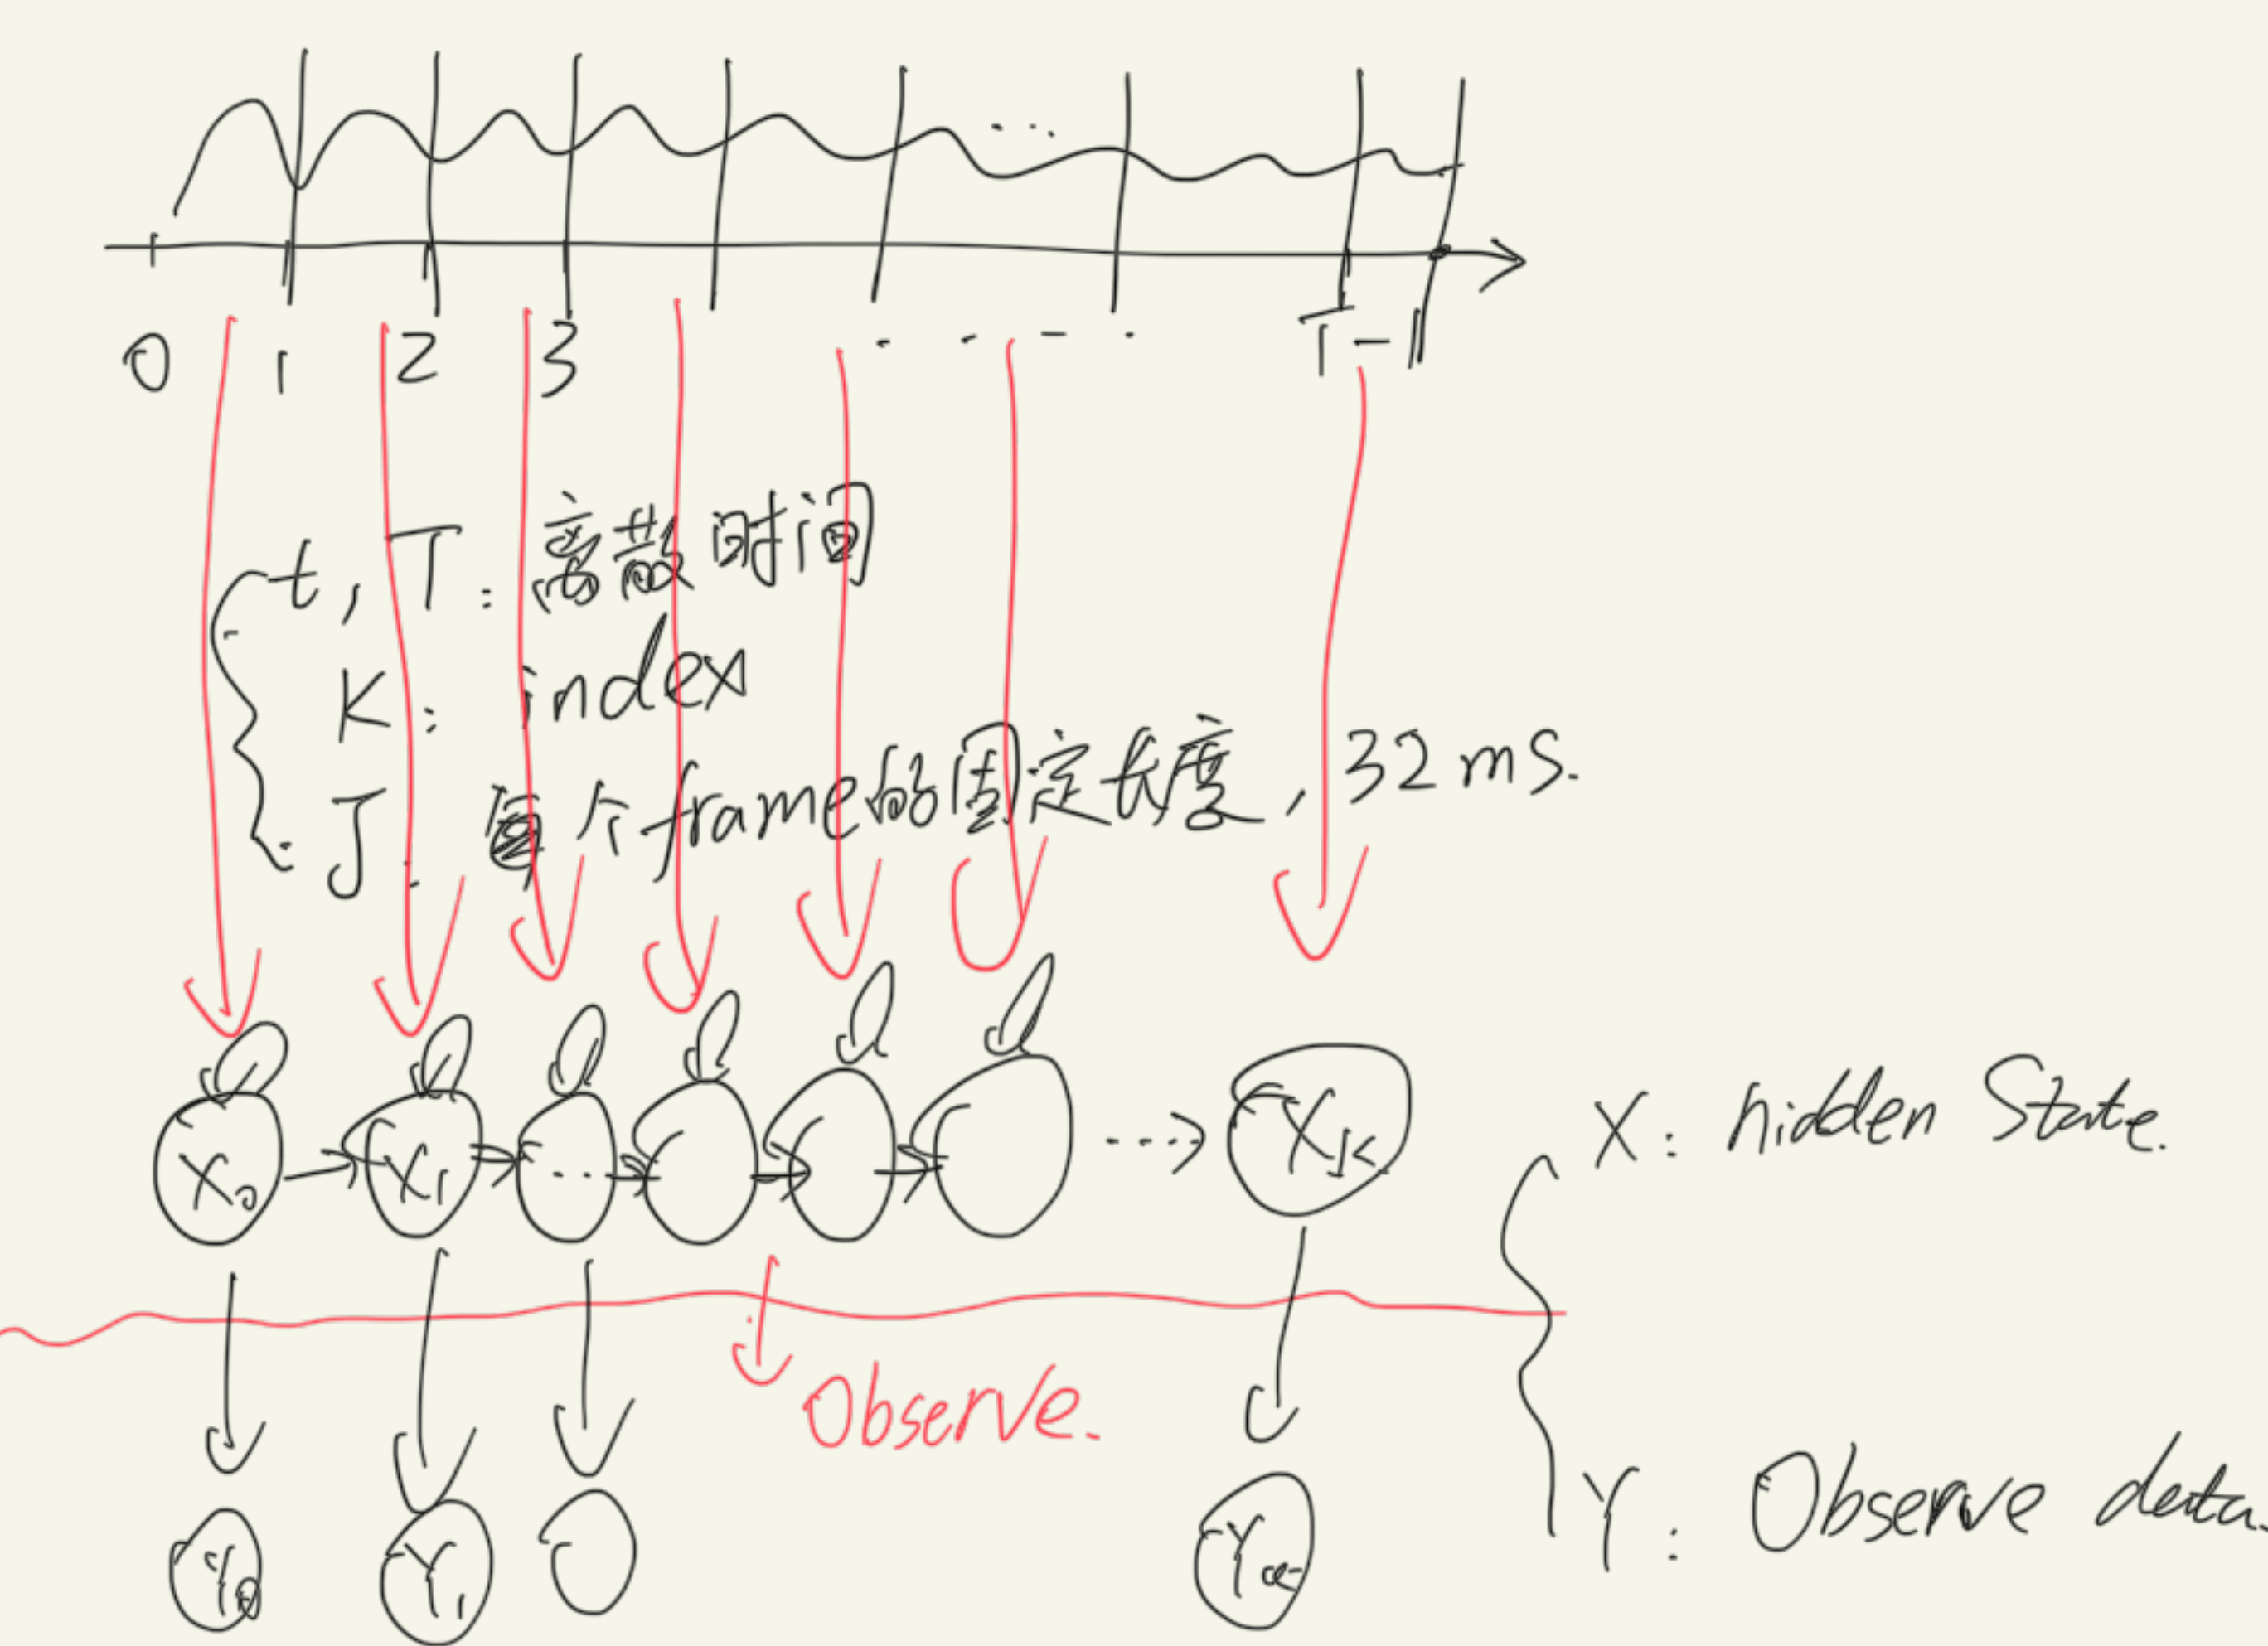 ...
0 1 2 3 . - - . T-1
t, T: 离散时间
K: index
J: 每个frame的固定长度, 32ms.
X₀ → X₁ → ... → → → ---> Xₖ
X: hidden State.
Observe.
Y₀ Y₁ Yₖ
Y: Observe data.